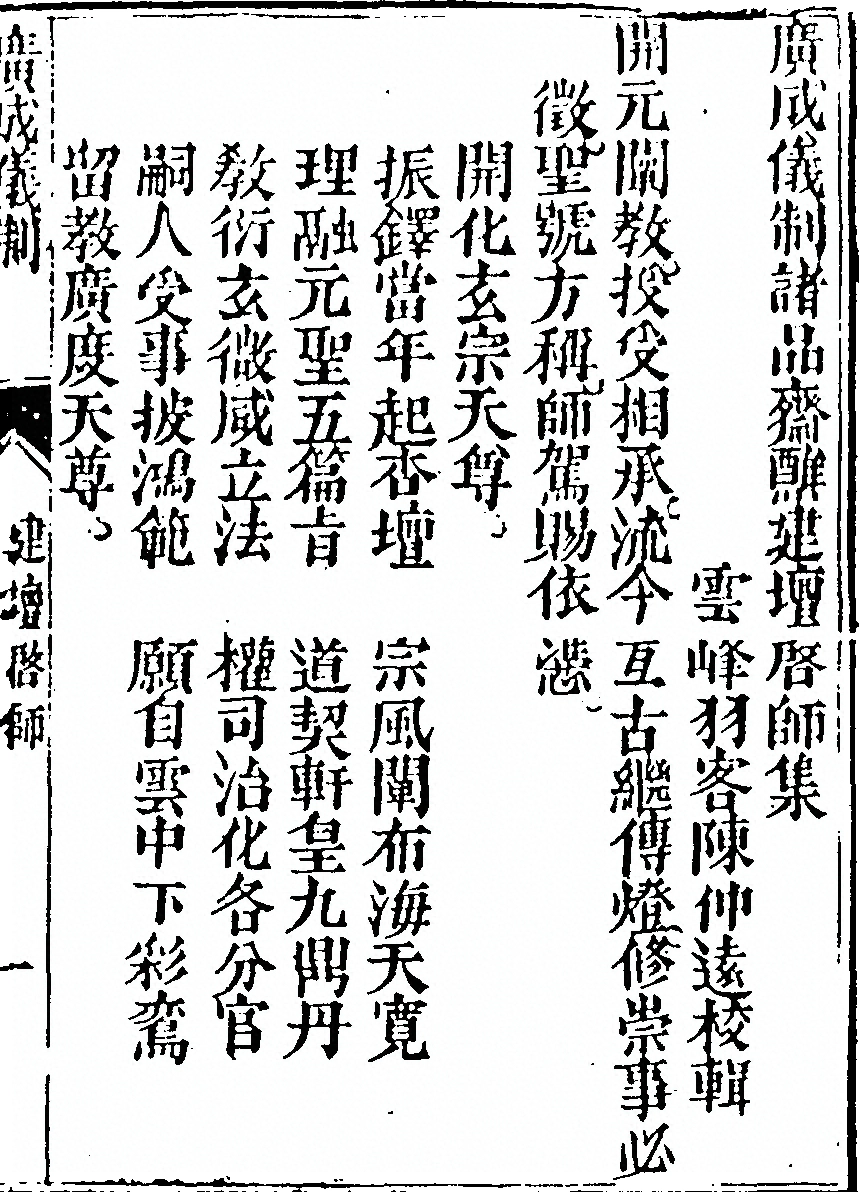 廣成儀制諸品齋醮建壇啓師集
雲峰羽客陳仲遠校輯
開元闡教授受相承流今亙古繼傳燈修崇事必
徵聖號方稱師駕賜依憑
開化玄宗天尊
振鐸當年起杏壇 宗風闡布海天寬
理融元聖五篇旨 道契軒皇九鼎丹
教衍玄微咸立法 權司治化各分官
嗣人受事披鴻範 願自雲中下彩鸞
留教廣度天尊
廣成儀制 建壇啓師 一